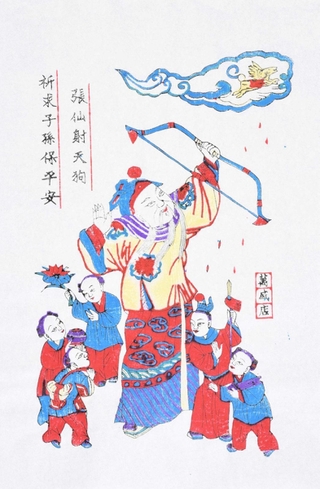 張仙射天狗
祈求子孫保平安
萬成店